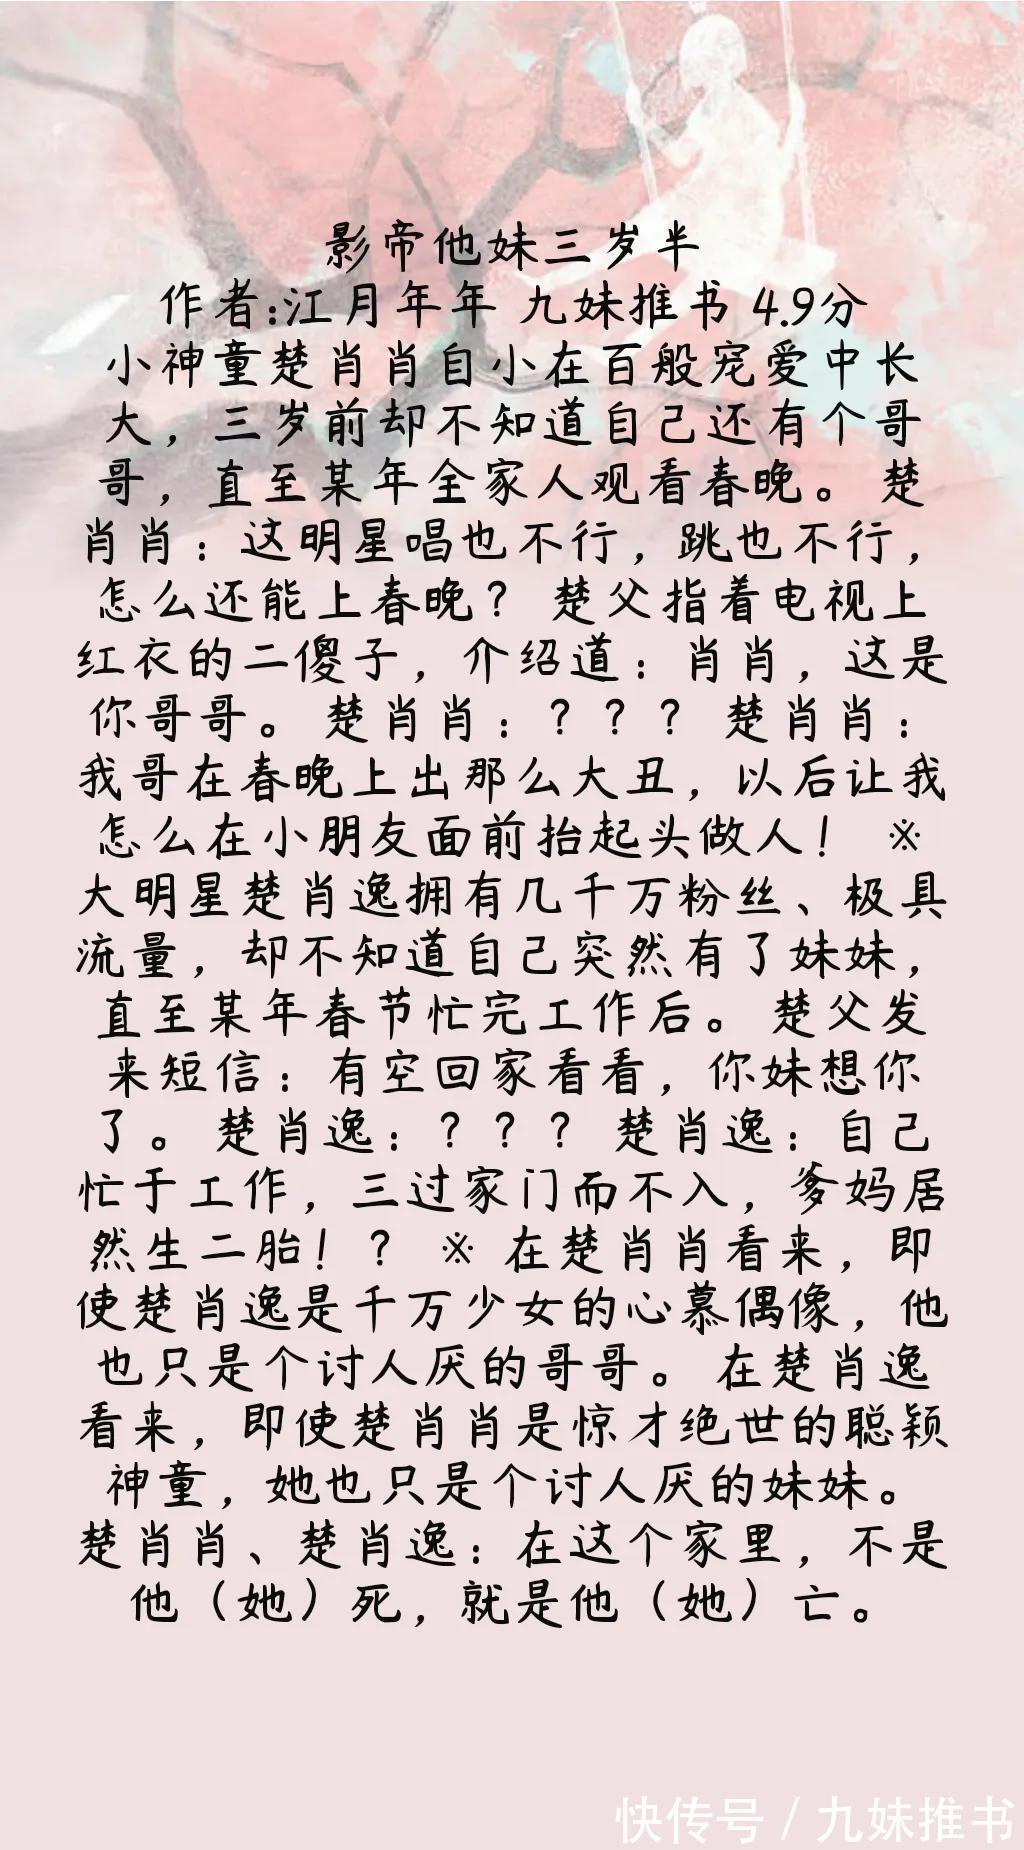 影帝他妹三岁半
作者:江月年年 九妹推书 4.9分
小神童楚肖肖自小在百般宠爱中长
大，三岁前却不知道自己还有个哥
哥，直至某年全家人观看春晚。 楚
肖肖：这明星唱也不行，跳也不行，
怎么还能上春晚？ 楚父指着电视上
红衣的二傻子，介绍道：肖肖，这是
你哥哥。 楚肖肖：？？？ 楚肖肖：
我哥在春晚上出那么大丑，以后让我
怎么在小朋友面前抬起头做人！ ※
大明星楚肖逸拥有几千万粉丝、极具
流量，却不知道自己突然有了妹妹，
直至某年春节忙完工作后。 楚父发
来短信：有空回家看看，你妹想你
了。 楚肖逸：？？？ 楚肖逸：自己
忙于工作，三过家门而不入，爹妈居
然生二胎！？ ※ 在楚肖肖看来，即
使楚肖逸是千万少女的心慕偶像，他
也只是个讨人厌的哥哥。 在楚肖逸
看来，即使楚肖肖是惊才绝世的聪颖
神童，她也只是个讨人厌的妹妹。
楚肖肖、楚肖逸：在这个家里，不是
他（她）死，就是他（她）亡。
快传号 / 九妹推书